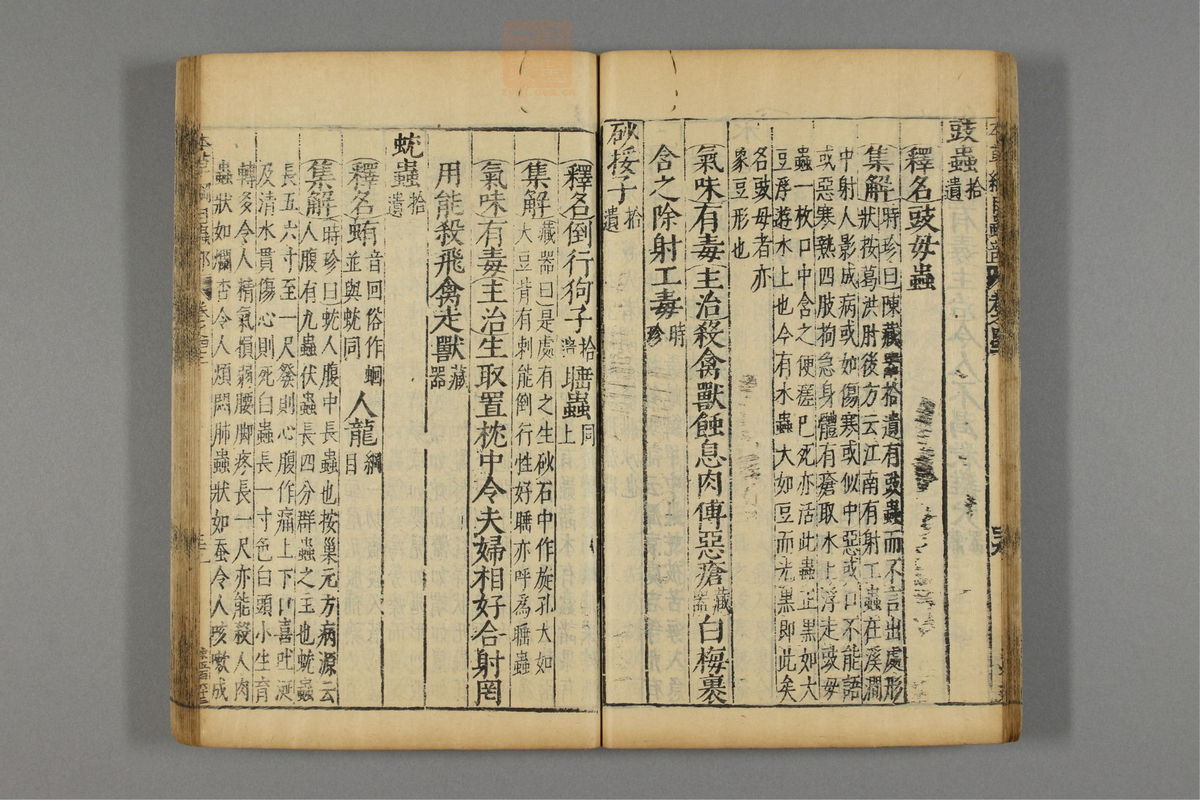 豉蟲拾遺
釋名豉母蟲
集解時珍曰陳藏器拾遺有豉蟲而不言出處形
狀按葛洪肘後方云江南有射工蟲在溪澗
中射人影成病或如傷寒或似中惡或口不能語
或惡寒熱四肢拘急身體有瘡取水上浮走豉母
蟲一枚口中含之便瘥巳死亦活此蟲正黒如大
豆浮遊水上也今有水蟲大如豆而光黒即此矣
名豉母者亦
象豆形也
氣味有毒主治殺禽獸蝕息肉傅惡瘡藏器白梅裹
含之除射工毒時珍
砂挼子拾遺
釋名倒行狗子拾遺𦞦蟲同上
集解藏器曰是處有之生砂石中作旋孔大如
大豆背有刺能倒行性好睡亦呼爲睡蟲
氣味有毒主治生取置枕中令夫婦相好合射罔
用能殺飛禽走獸藏器
蚘蟲拾遺
釋名蛕音回俗作蛔
並與蚘同人龍綱目
集解時珍曰蚘人腹中長蟲也按巢元方病源云
人腹有九蟲伏蟲長四分群蟲之王也蚘蟲
長五六寸至一尺發則心腹作痛上下口喜吐涎
及清水貫傷心則死白蟲長一寸色白頭小生育
轉多令人精氣損弱腰脚疼長一尺亦能殺人肉
蟲狀如爛杏令人煩悶肺蟲狀如蚕令人咳嗽成